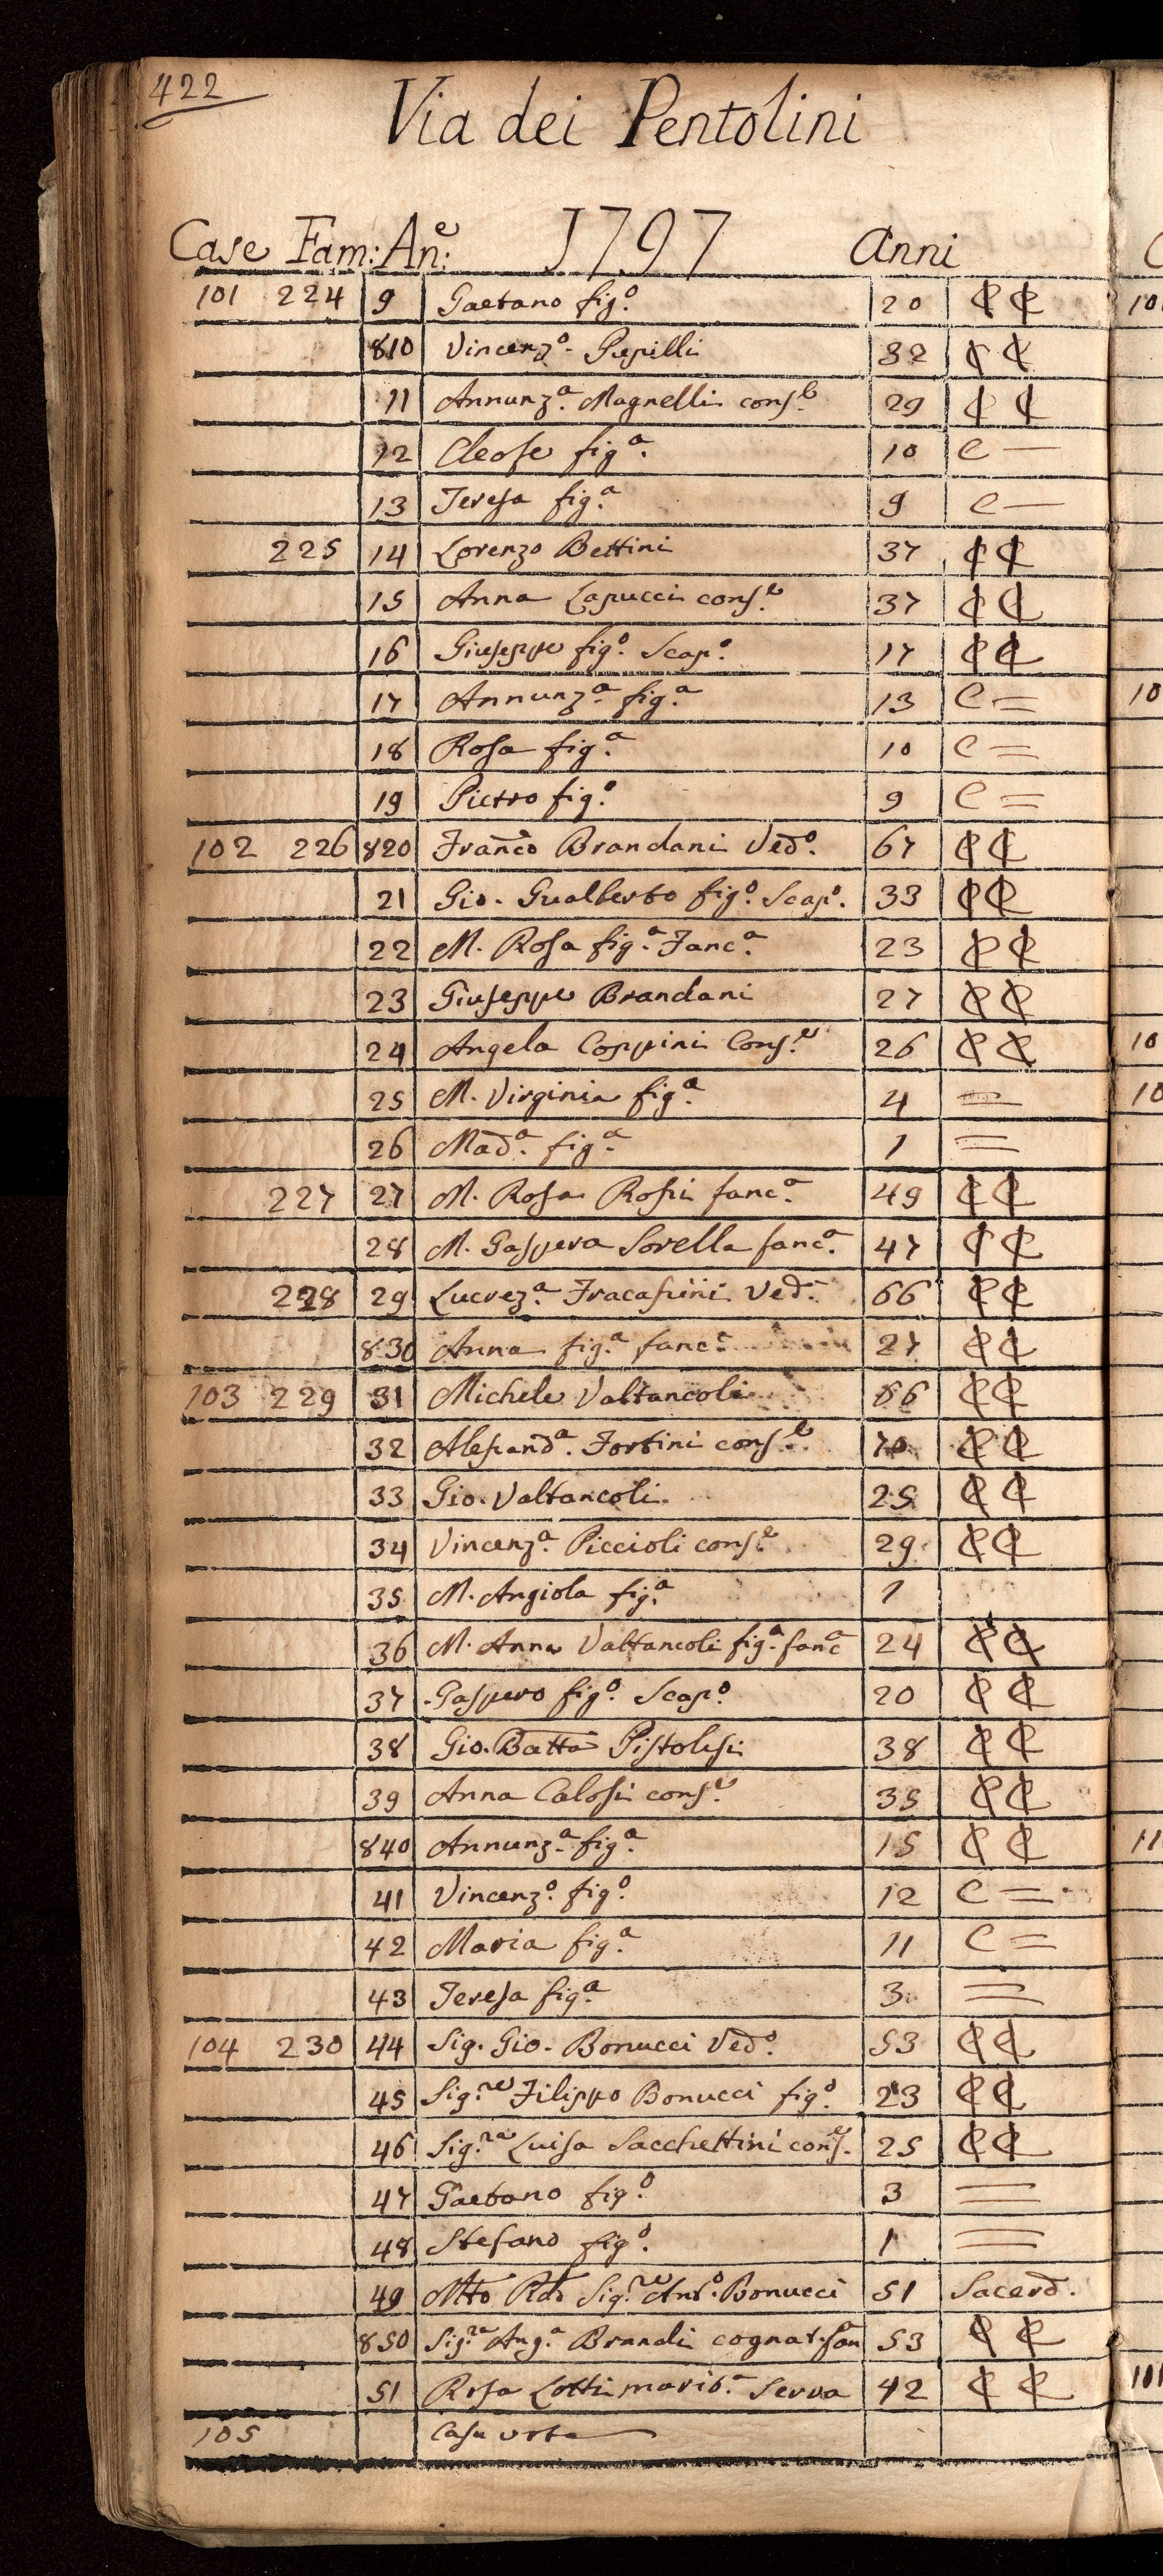 422
Via dei Pentolini
Case Fam: An.e 1797 Anni
101 224 9 Gaetano fig.o 20 C C
810 Vincenz.o Pupilli 32 C C
11 Annunz.a Magnelli cons.e 29 C C
12 Cleofe fig.a 10 C —
13 Teresa fig.a 9 C —
225 14 Lorenzo Bettini 37 C C
15 Anna Lapucci cons.e 37 C C
16 Giuseppe fig.o Scap.o 17 C C
17 Annunz.a fig.a 13 C =
18 Rosa fig.a 10 C =
19 Pietro fig.o 9 C =
102 226 820 Franco Brandani Ved.o 67 C C
21 Gio. Gualberto fig.o Scap.o 33 C C
22 M. Rosa fig.a Fanc.a 23 C C
23 Giuseppe Brandani 27 C C
24 Angela Coppini Cons.e 26 C C
25 M. Virginia fig.a 4 =
26 Mad.a fig.a 1 =
227 27 M. Rosa Rossi fanc.a 49 C C
28 M. Gaspera Sorella fanc.a 47 C C
228 29 Lucrez.a Fracassini Ved.a 66 C C
830 Anna fig.a fanc.a 27 C C
103 229 31 Michele Valtancoli 66 C C
32 Alessand.a Fortini cons.e C C
33 Gio. Valtancoli 25 C C
34 Vincenz.a Piccioli cons.e 29 C C
35 M. Angiola fig.a 1
36 M. Anna Valtancoli fig.a fanc.a 24 C C
37 Gaspero fig.o Scap.o 20 C C
38 Gio. Batta Pistolesi 38 C C
39 Anna Calosi cons.e 35 C C
840 Annunz.a fig.a 15 C C
41 Vincenz.o fig.o 12 C =
42 Maria fig.a 11 C =
43 Teresa fig.a 3 =
104 230 44 Sig. Gio. Bonucci Ved.o 53 C C
45 Sig.re Filippo Bonucci fig.o 23 C C
46 Sig.ra Luisa Sacchettini cons.e 25 C C
47 Gaetano fig.o 3 =
48 Stefano fig.o 1 =
49 Mto Rdo Sig.re Ant.o Bonucci 51 Sacerd.
850 Sig.ra Ang.a Brandi cognat. fan 53 C C
51 Rosa Lotti marit.a Serva 42 C C
105 Casa vota